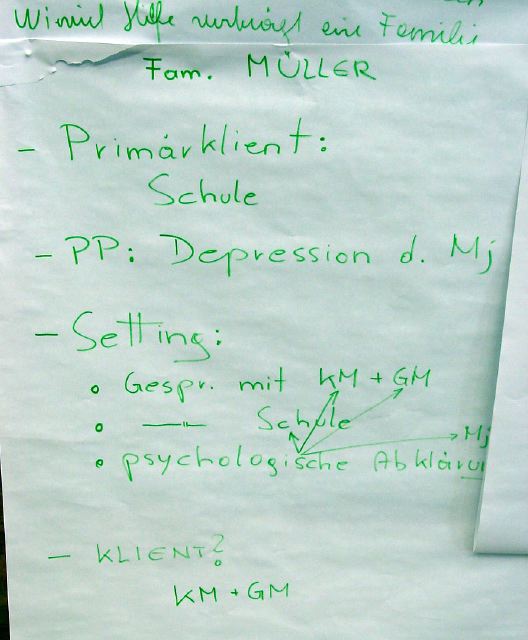 Wieviel Hilfe verträgt eine Familie
Fam. MÜLLER
- Primärklient:
Schule
- PP: Depression d. Mj
- Setting:
• Gespr. mit KM + GM
• —"— Schule
• psychologische Abkläru
Mj
- KLIENT?
KM + GM